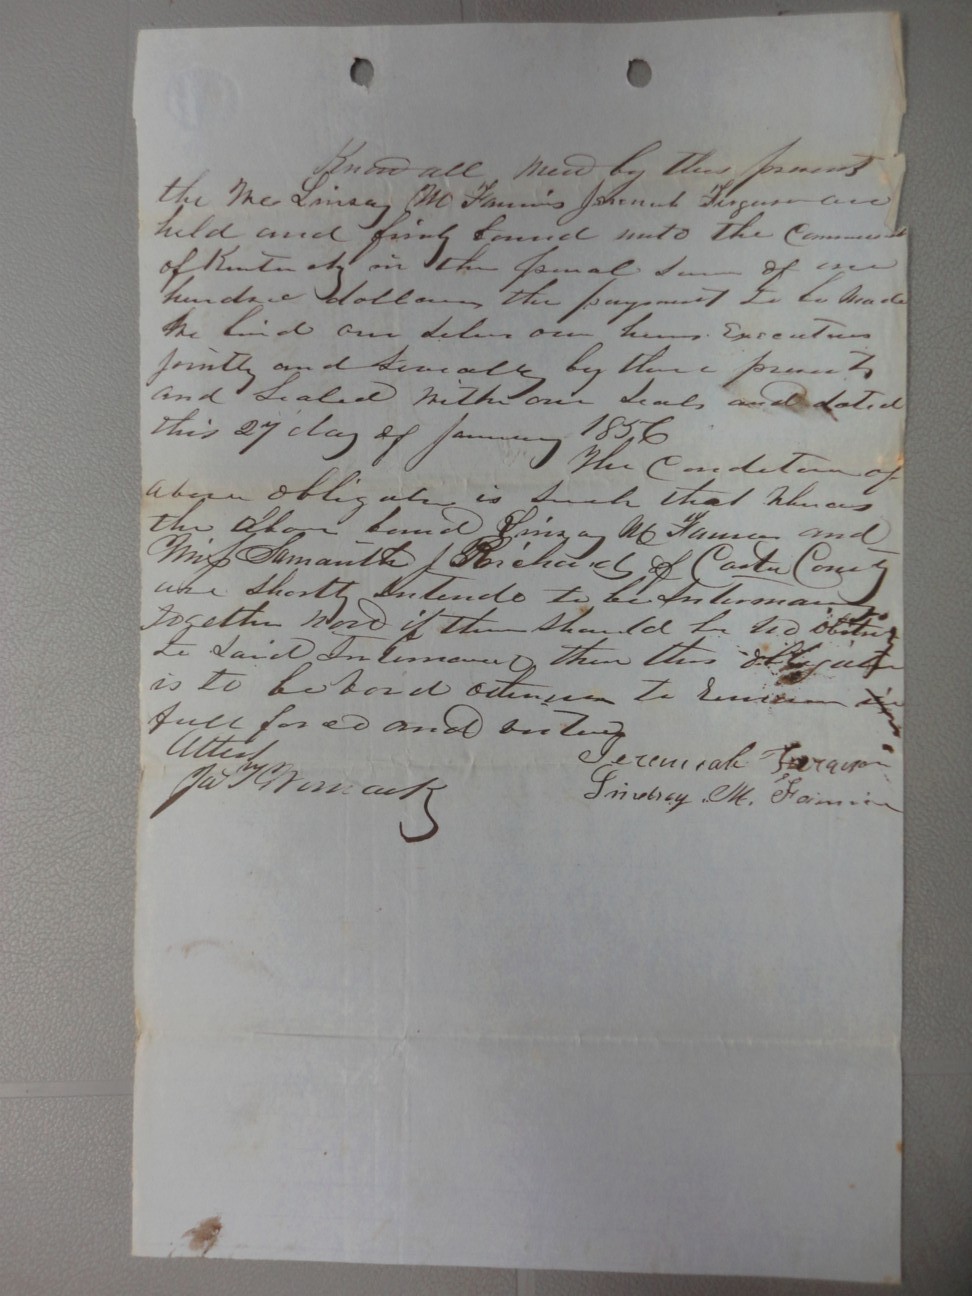 Know all men by these presents
the We Linsay M Fannin Jeremiah Ferguson are
held and firmly bound unto the Commonwealth
of Kentucky in the penal sum of one
hundred dollars the payment to be Made
We bind our selves our heirs Executors
Jointly and Severally by these presents
and Sealed With our Seals and dated
this 27 day of January 1856
The Condition of
above obligation is such that Whereas
the above bound Linsay M Fannin and
Miss Samantha J Richards of Carter County
are shortly Intende to be Intermarried
together Now if there should be no
to Said Intermarriage then this obligation
is to be void otherwise to Remain in
full force and virtue
Attest Jeremiah Ferguson
Jas W Womack Lindsay M. Fannin